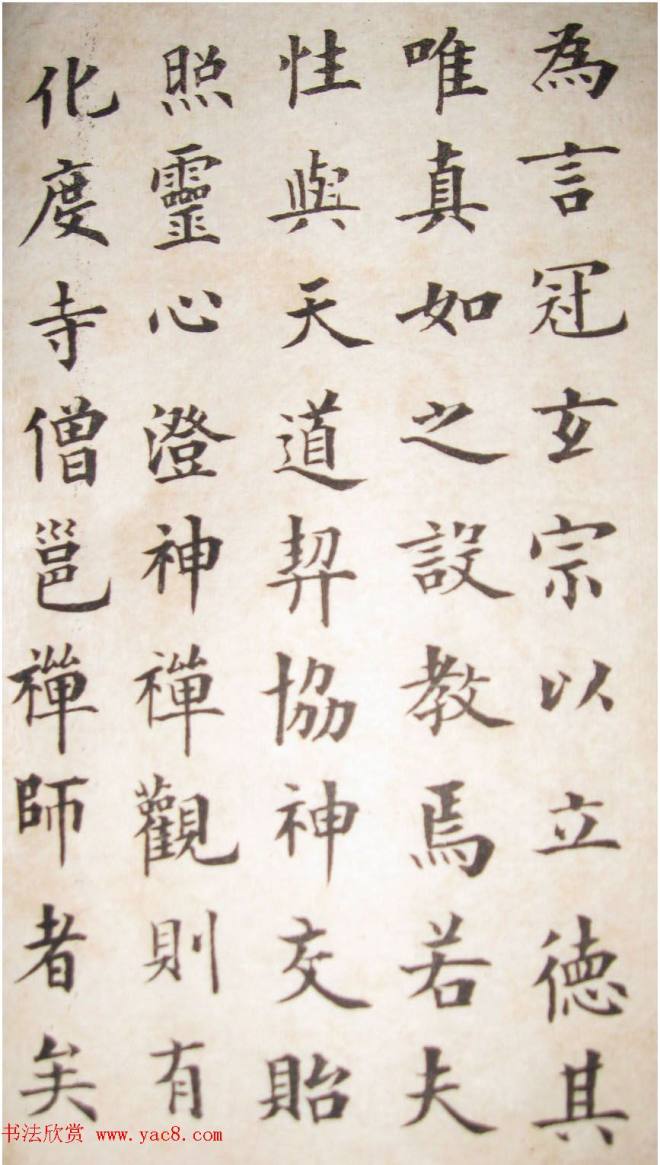 為言冠玄宗以立德其
唯真如之設教焉若夫
性與天道契協神交貽
照靈心澄神禪觀則有
化度寺僧邕禪師者矣
书法欣赏 www.yac8.com